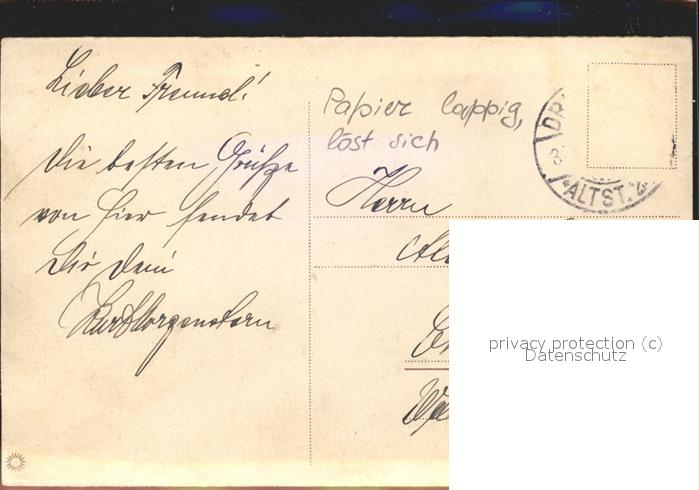 Lieber Freund!
Die besten Grüße
von hier sendet
Dir Dein
Kurt Morgenstern
Papier lappig,
löst sich
Herrn
DR
3
*ALTST.*
privacy protection (c)
Datenschutz